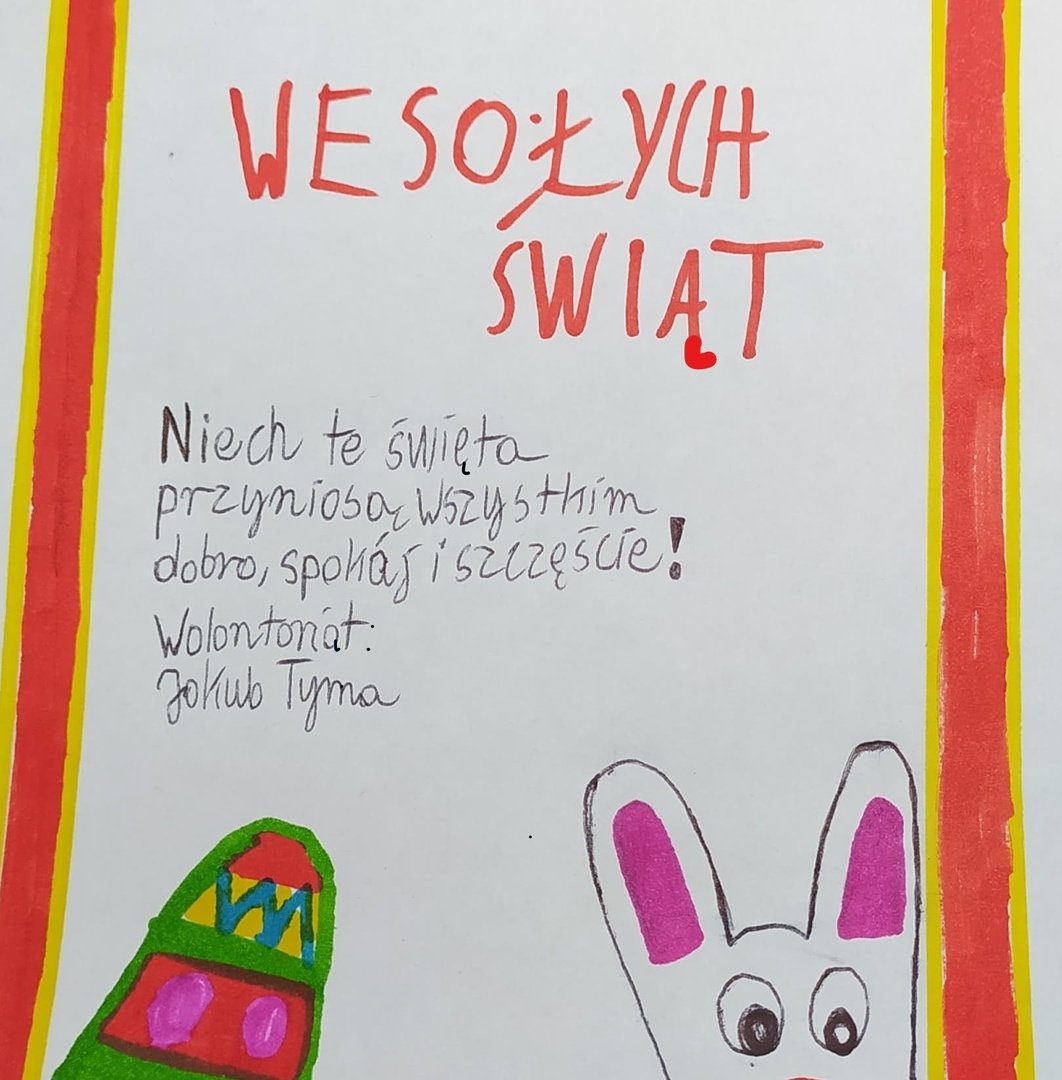 WESOŁYCH
ŚWIĄT
Niech te święta
przyniosą wszystkim
dobro, spokój i szczęście!
Wolontariat:
Jakub Tyma